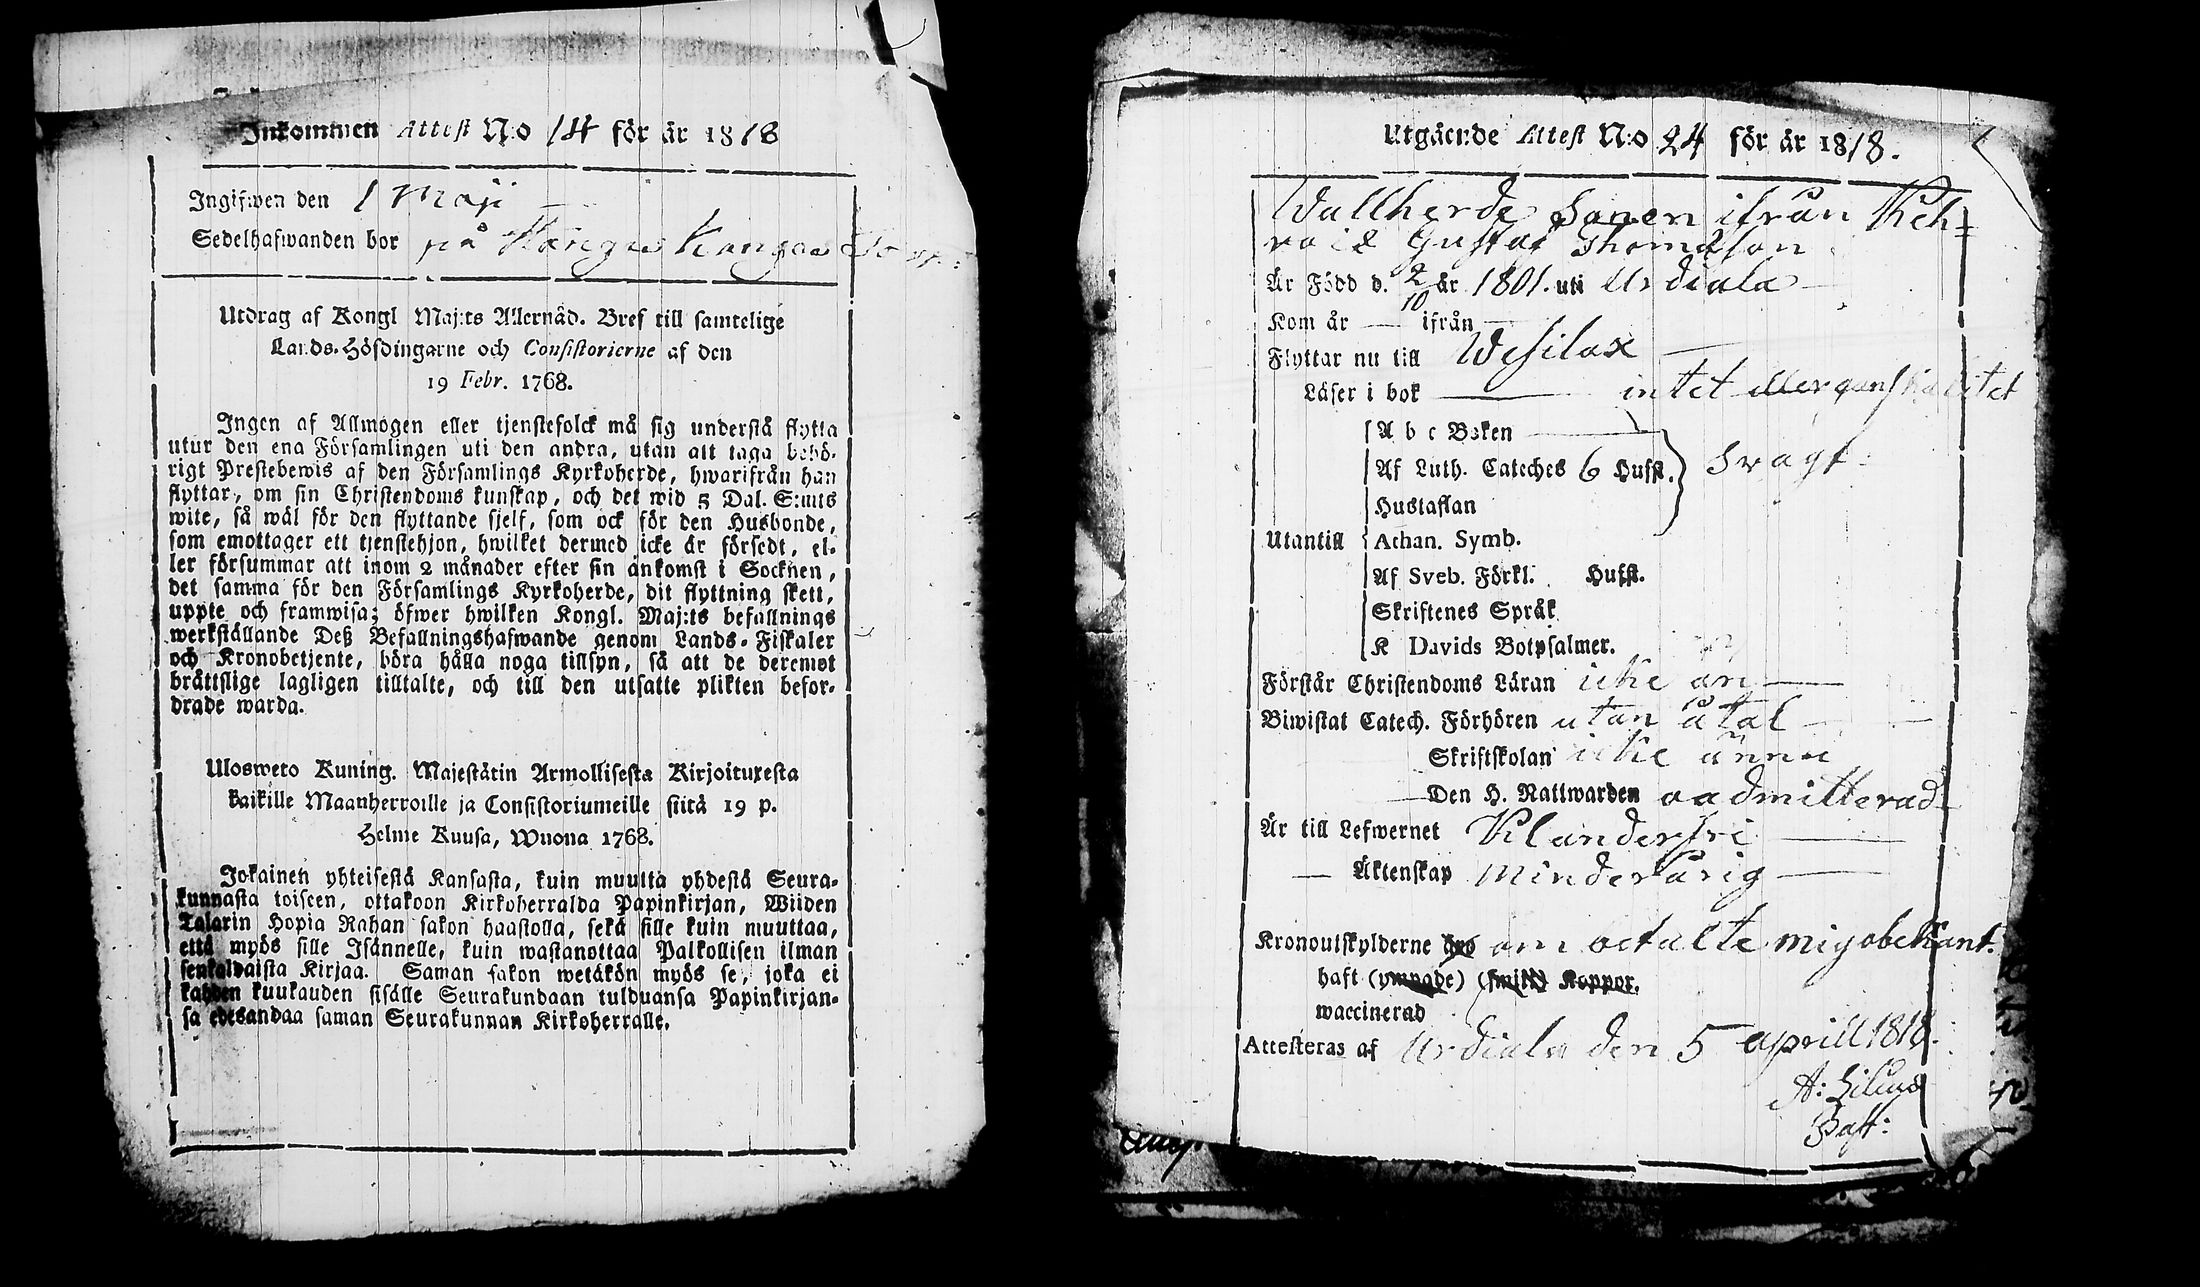 Inkommen Attest N:o 14 för år 1818
Ingifwen den 1 Maji
Sedelhafwanden bor på Kangas
Utdrag af Kongl Maj:ts Allernåd. Bref till samtelige
Lands-Höfdingarne och Consistorierne af den
19 Febr. 1768.
Ingen af Allmogen eller tjenstefolck må sig understå flytta
utur den ena Församlingen uti den andra, utan att taga behö-
rigt Prestebewis af den Församlings Kyrkoherde, hwarifrån han
flyttar, om sin Christendoms kunskap, och det wid 5 Dal. S:mts
wite, så wäl för den flyttande sjelf, som ock för den Husbonde,
som emottager ett tjenstehjon, hwilket dermed icke är försedt, el-
ler försummar att inom 2 månader efter sin ankomst i Socknen,
det samma för den Församlings Kyrkoherde, dit flyttning skett,
uppte och framwisa; öfwer hwilken Kongl. Maj:ts befallnings
werkställande Deß Befallningshafwande genom Lands-Fiskaler
och Kronobetjente, böra hålla noga tillsyn, så att de deremot
bråttslige lagligen tilltalte, och till den utsatte plikten befor-
drade warda.
Ulosweto Kuning. Majestätin Armollisesta Kirjoituxesta
kaikille Maanherroille ja Consistoriumeille siitä 19 p.
Helme Kuusa, Wuona 1768.
Jokainen yhteisestä Kansasta, kuin muutta yhdestä Seura-
kunnasta toiseen, ottakoon Kirkoherralda Papinkirjan, Wiiden
Talarin Hopia Rahan sakon haastolla, sekä sille kuin muuttaa,
että myös sille Isännelle, kuin wastanottaa Palkollisen ilman
senkaldaista Kirjaa. Saman sakon wetäkön myös se, joka ei
kahden kuukauden sisälle Seurakundaan tulduansa Papinkirjan-
sa edesandaa saman Seurakunnan Kirkoherralle.
Utgående Attest N:o 24 för år 1818.
Wallherde Sonen ifrån Keh=
rois Gustaf Thomasson
Är Född d. 2/10 år 1801. uti Urdiala
Kom år — ifrån —
Flyttar nu till Wesilax
Läser i bok — intet
A b c Boken
Af Luth. Cateches 6 Hufst. Svagt
Hustaflan
Utantill Athan. Symb.
Af Sveb. Förkl. Hufst.
Skriftenes Språk
K Davids Botpsalmer.
Förstår Christendoms Läran icke än
Biwistat Catech. Förhören utan åtal
Skriftskolan icke ännu
Den H. Nattwarden oadmitterad
Är till Lefwernet Klanderfri
— Äktenskap minderårig
Kronoutskylderne äro om betalte mig obekant.
haft (ympade) (smitt) Koppor.
waccinerad
Attesteras af Urdiala den 5 aprill 1818.
A: Lilius
Past: